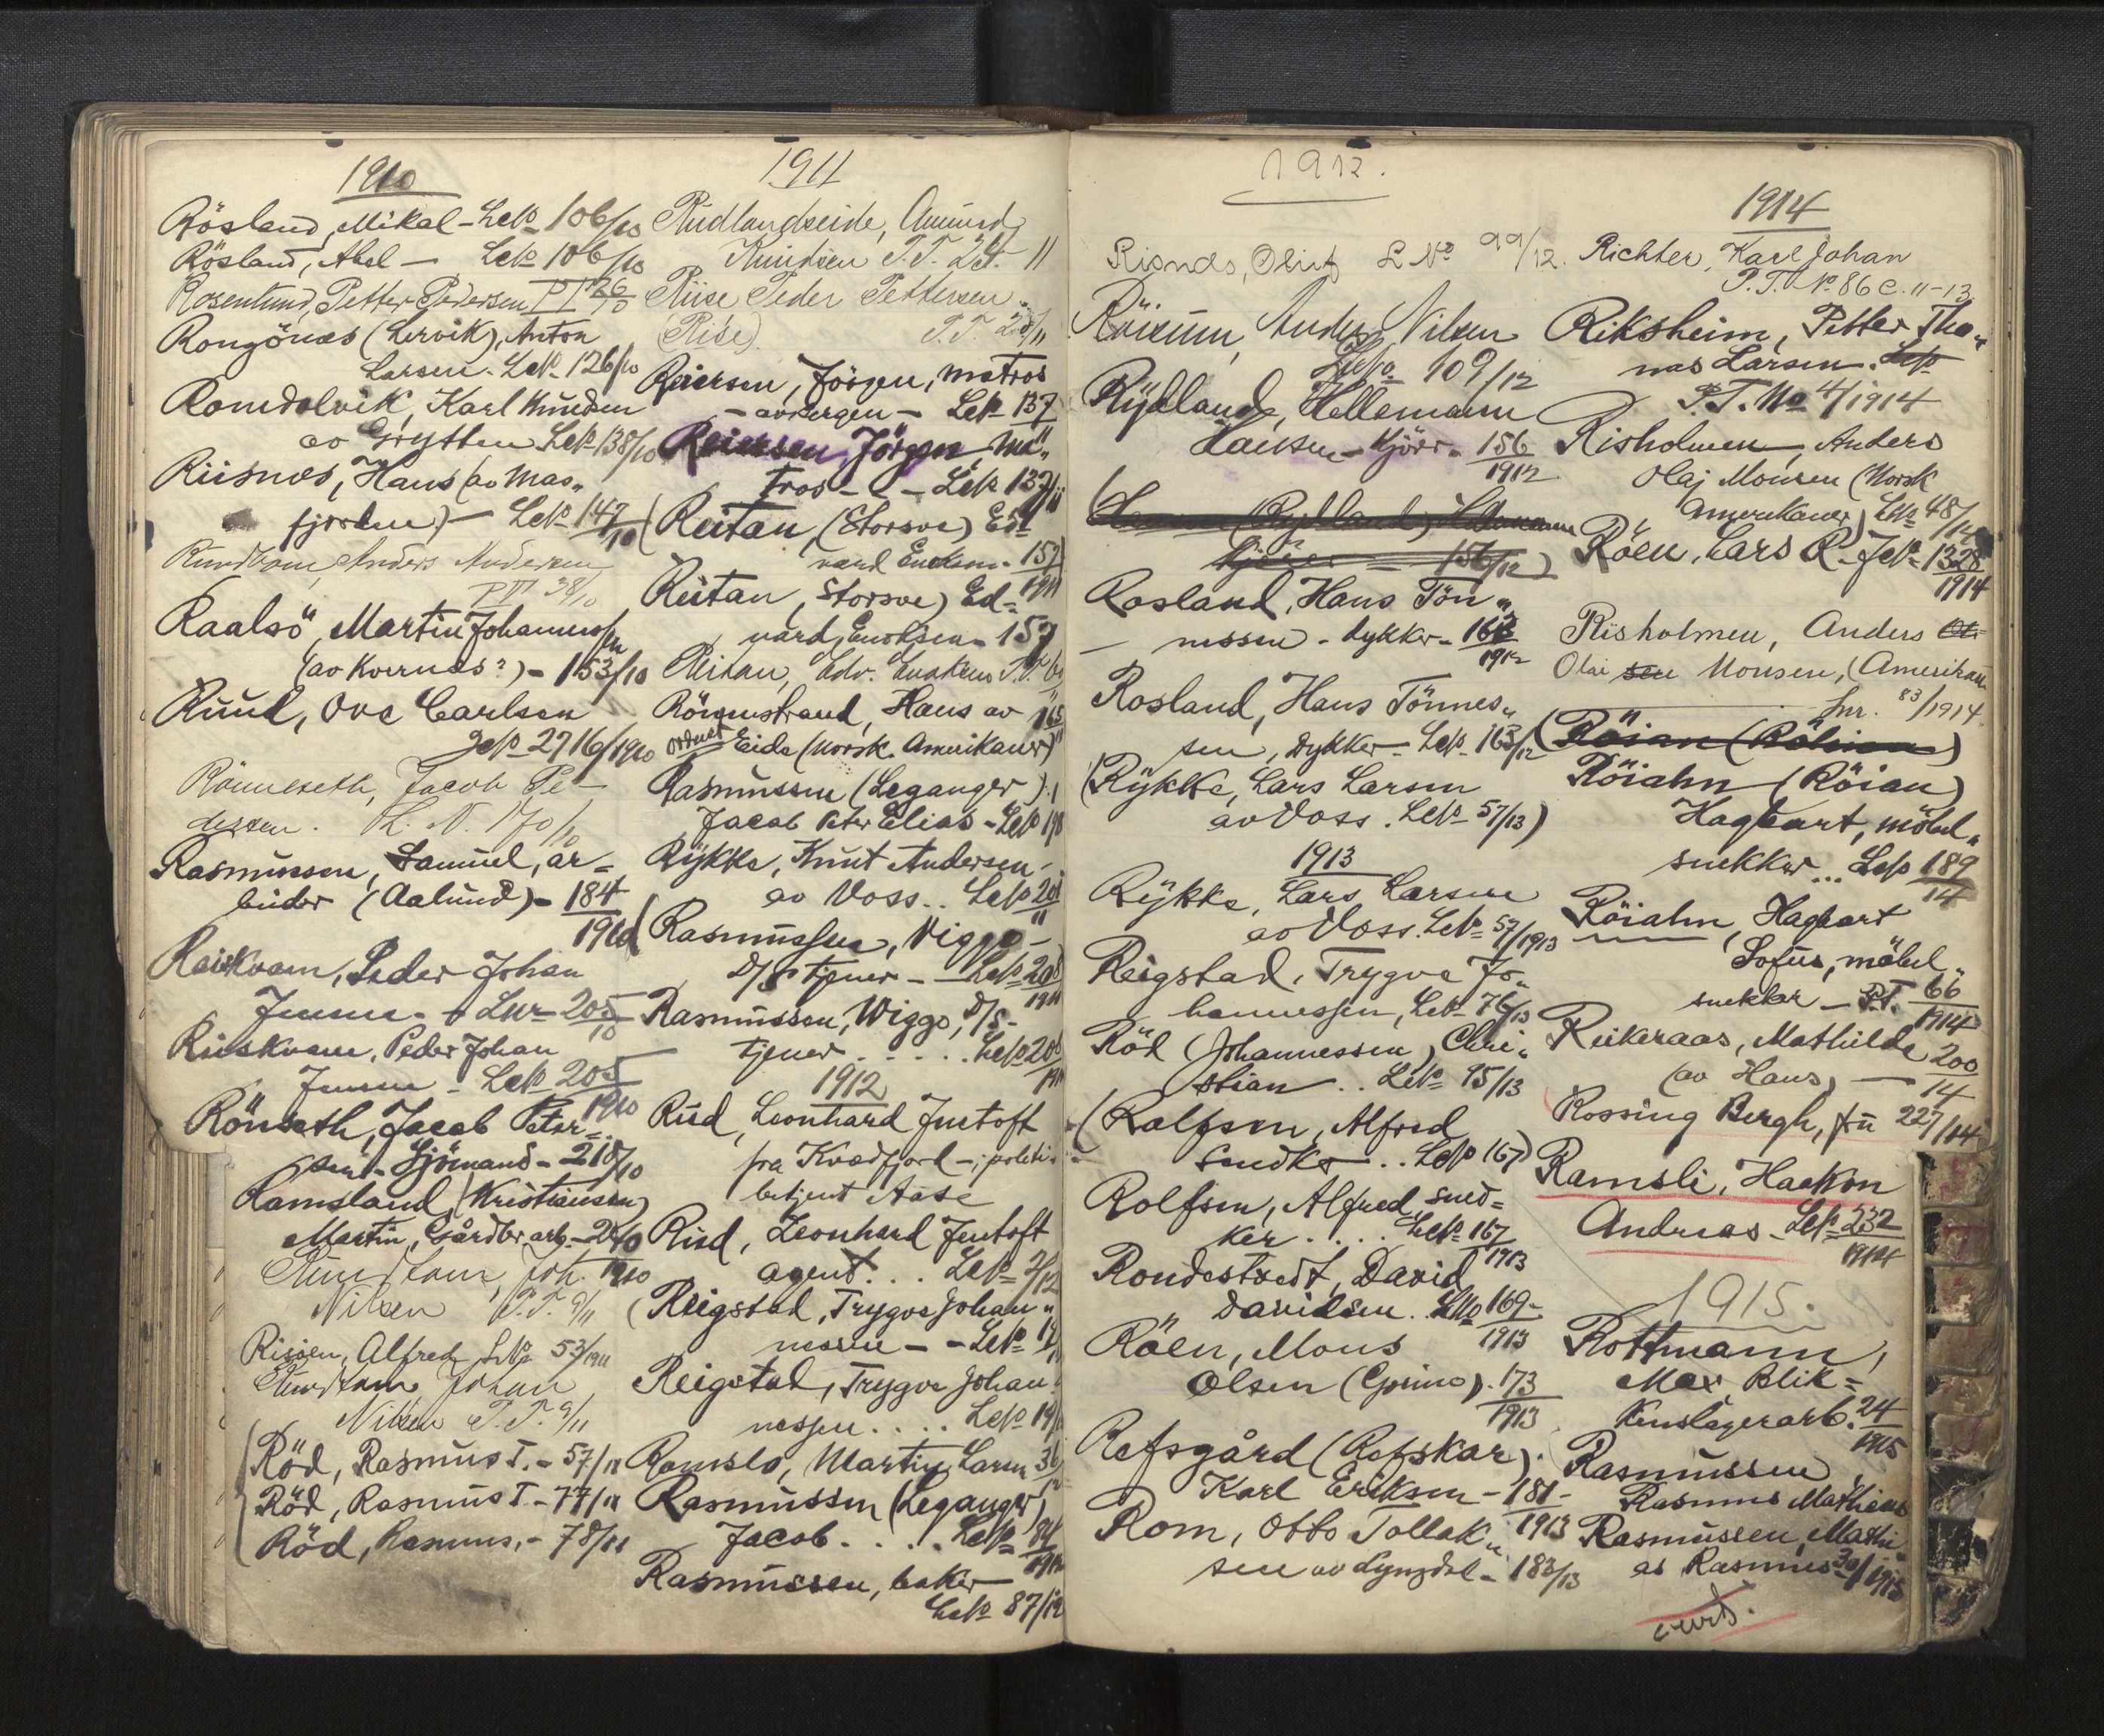 1910
Rösland, Mikal - LNo 106/10
Rösland, Abel - LNo 106/10
Rosenlund, Petter Pedersen PT 26/10
Rongönes (Lervik), Anton
Larsen. LNo 126/10
Romdalvik, Karl Knudsen
av Grytten LNo 138/10
Riisnes, Hans (av Mas„
fjorden) - LNo 147/10
Anders Andersen
38/10
Raalsö, Martin Johannessen
(av Kvernes?) - 153/10
Ruud, Ove Carlsen
JNo 2716/1910
Rönneseth, Jacob Pe-
dersen. L. N. 170/10
Rasmussen, Samuel, ar-
beider (Aalund) - 184
1910
Peder Johan
Jensen - LNr 205/10
Riiskvam, Peder Johan
Jensen - LNo 205
1910
Rönseth, Jacob Peter-
sen - Sjömand - 218/10
Ramsland, (Kristiansen)
Martin, Gårdbr arb.
1910
Nilsen P.T. 9/11
Risöen, Alfred LNo 53/1911
Johan
Nilsen P.T. 9/11
(Röd, Rasmus T. - 57/11
Röd, Rasmus T. - 77/11
Röd, Rasmus, - 78/11
1911
Rudlandseide, Amund
Knudsen P.T. 11
Riise Peder Pettersen
(Rise) P.T.
Reiersen, Jörgen, matros
- av Bergen - LNo 137
Reiersen, Jörgen ma„
tros - - - LNo 137/11
(Reitan, (Storsve) Ed-
vard Enoksen - 157)
1911
Reitan, Storsve) Ed-
vard, Enoksen - 157
Reitan, Edv. Enoksen P.T.
Rönnestrand, Hans av 165
Eide (norsk Amerikaner)
Rasmussen (Leganger)
Jacob Peter Elias - LNo 198
Rykke, Knut Andersen
av Voss.. LNo
(Rasmussen, Viggo -
D/S tjener - LNo 208
1911
Rasmussen, Wiggo, D/S -
tjener . . . . LNo 208
1911
1912
Rud, Leonhard Jentoft
fra Kvædfjord - politi-
betjent Aase
Rud, Leonhard Jentoft
agent . . . LNo 2/12
(Reigstad, Trygve Johan„
nessen - - LNo
Reigstad, Trygve Johan„
nessen . . . . LNo
Ramslo, Martin Larsen
Rasmussen (Leganger)
Jacob . . . . LNo 84
1912
Rasmussen, baker
LNo 87/12
1912.
Risnes, Oluf L No 99/12.
Anders Nilsen
LNo 109/12
Rydland, Hellemann
Hansen - Kjörr - 156
1912
(Rydland)
156/12)
Rosland, Hans Tön„
nessen - dykker - 163
1912
Rosland, Hans Tönnes„
sen, dykker - LNo 163/12
(Rykke, Lars Larsen
av Voss. LNo 57/13)
1913
Rykke, Lars Larsen
av Voss. LNo 57/1913
Reigstad, Trygve Jo„
hannessen, LNo 76/13
Röd (Johannessen) Chri„
stian . . LNo 95/13
(Rolfsen, Alfred
Snedker . . LNo 167)
Rolfsen, Alfred, sned-
ker . . . . LNo 167
1913
Rondestvedt, David
Davidsen. LNo 169-
1913
Röen, Mons
Olsen (Grimo). 173
1913
Refsgård (Refskar)
Karl Eriksen - 181-
1913
Rom, Otto Tollak„
sen av Lyngdal - 183/13
1914
Richter, Karl Johan
P.T. No 86 c. 11-13
Riksheim, Petter Tho„
mas Larsen. LNo
P.T. No 4/1914
Risholmen, Anders
Olai Monsen (Norsk
Amerikaner) LNo 48/14
Röen, Lars R. JNo 1328
1914
Risholmen, Anders Ol-
Olai sen Monsen, (Amerikan
Lnr. 83/1914.
(Röian (Röhian)
Röiahn (Röian)
Hagbart, möbel„
snekker... LNo 189
14
Röiahn, Hagbart
Sofus, möbel„
snekker - P.T. 66
1914
Reikeraas, Mathilde 200
(av Haus) - 14
Rossing Bergh, fru 227/14
Ramsli, Haakon
Andreas - LNo 232
1914
1915.
Rottmann,
Max, Blik-
kenslagerarb. 24
1915
Rasmussen
Rasmus Mathias
Rasmussen, Mathi„
as Rasmus 30/1915
vend.